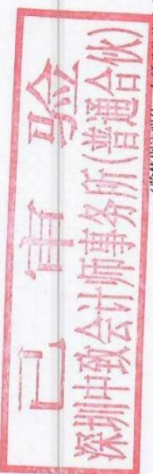 已审验
深圳中致会计师事务所(普通合伙)